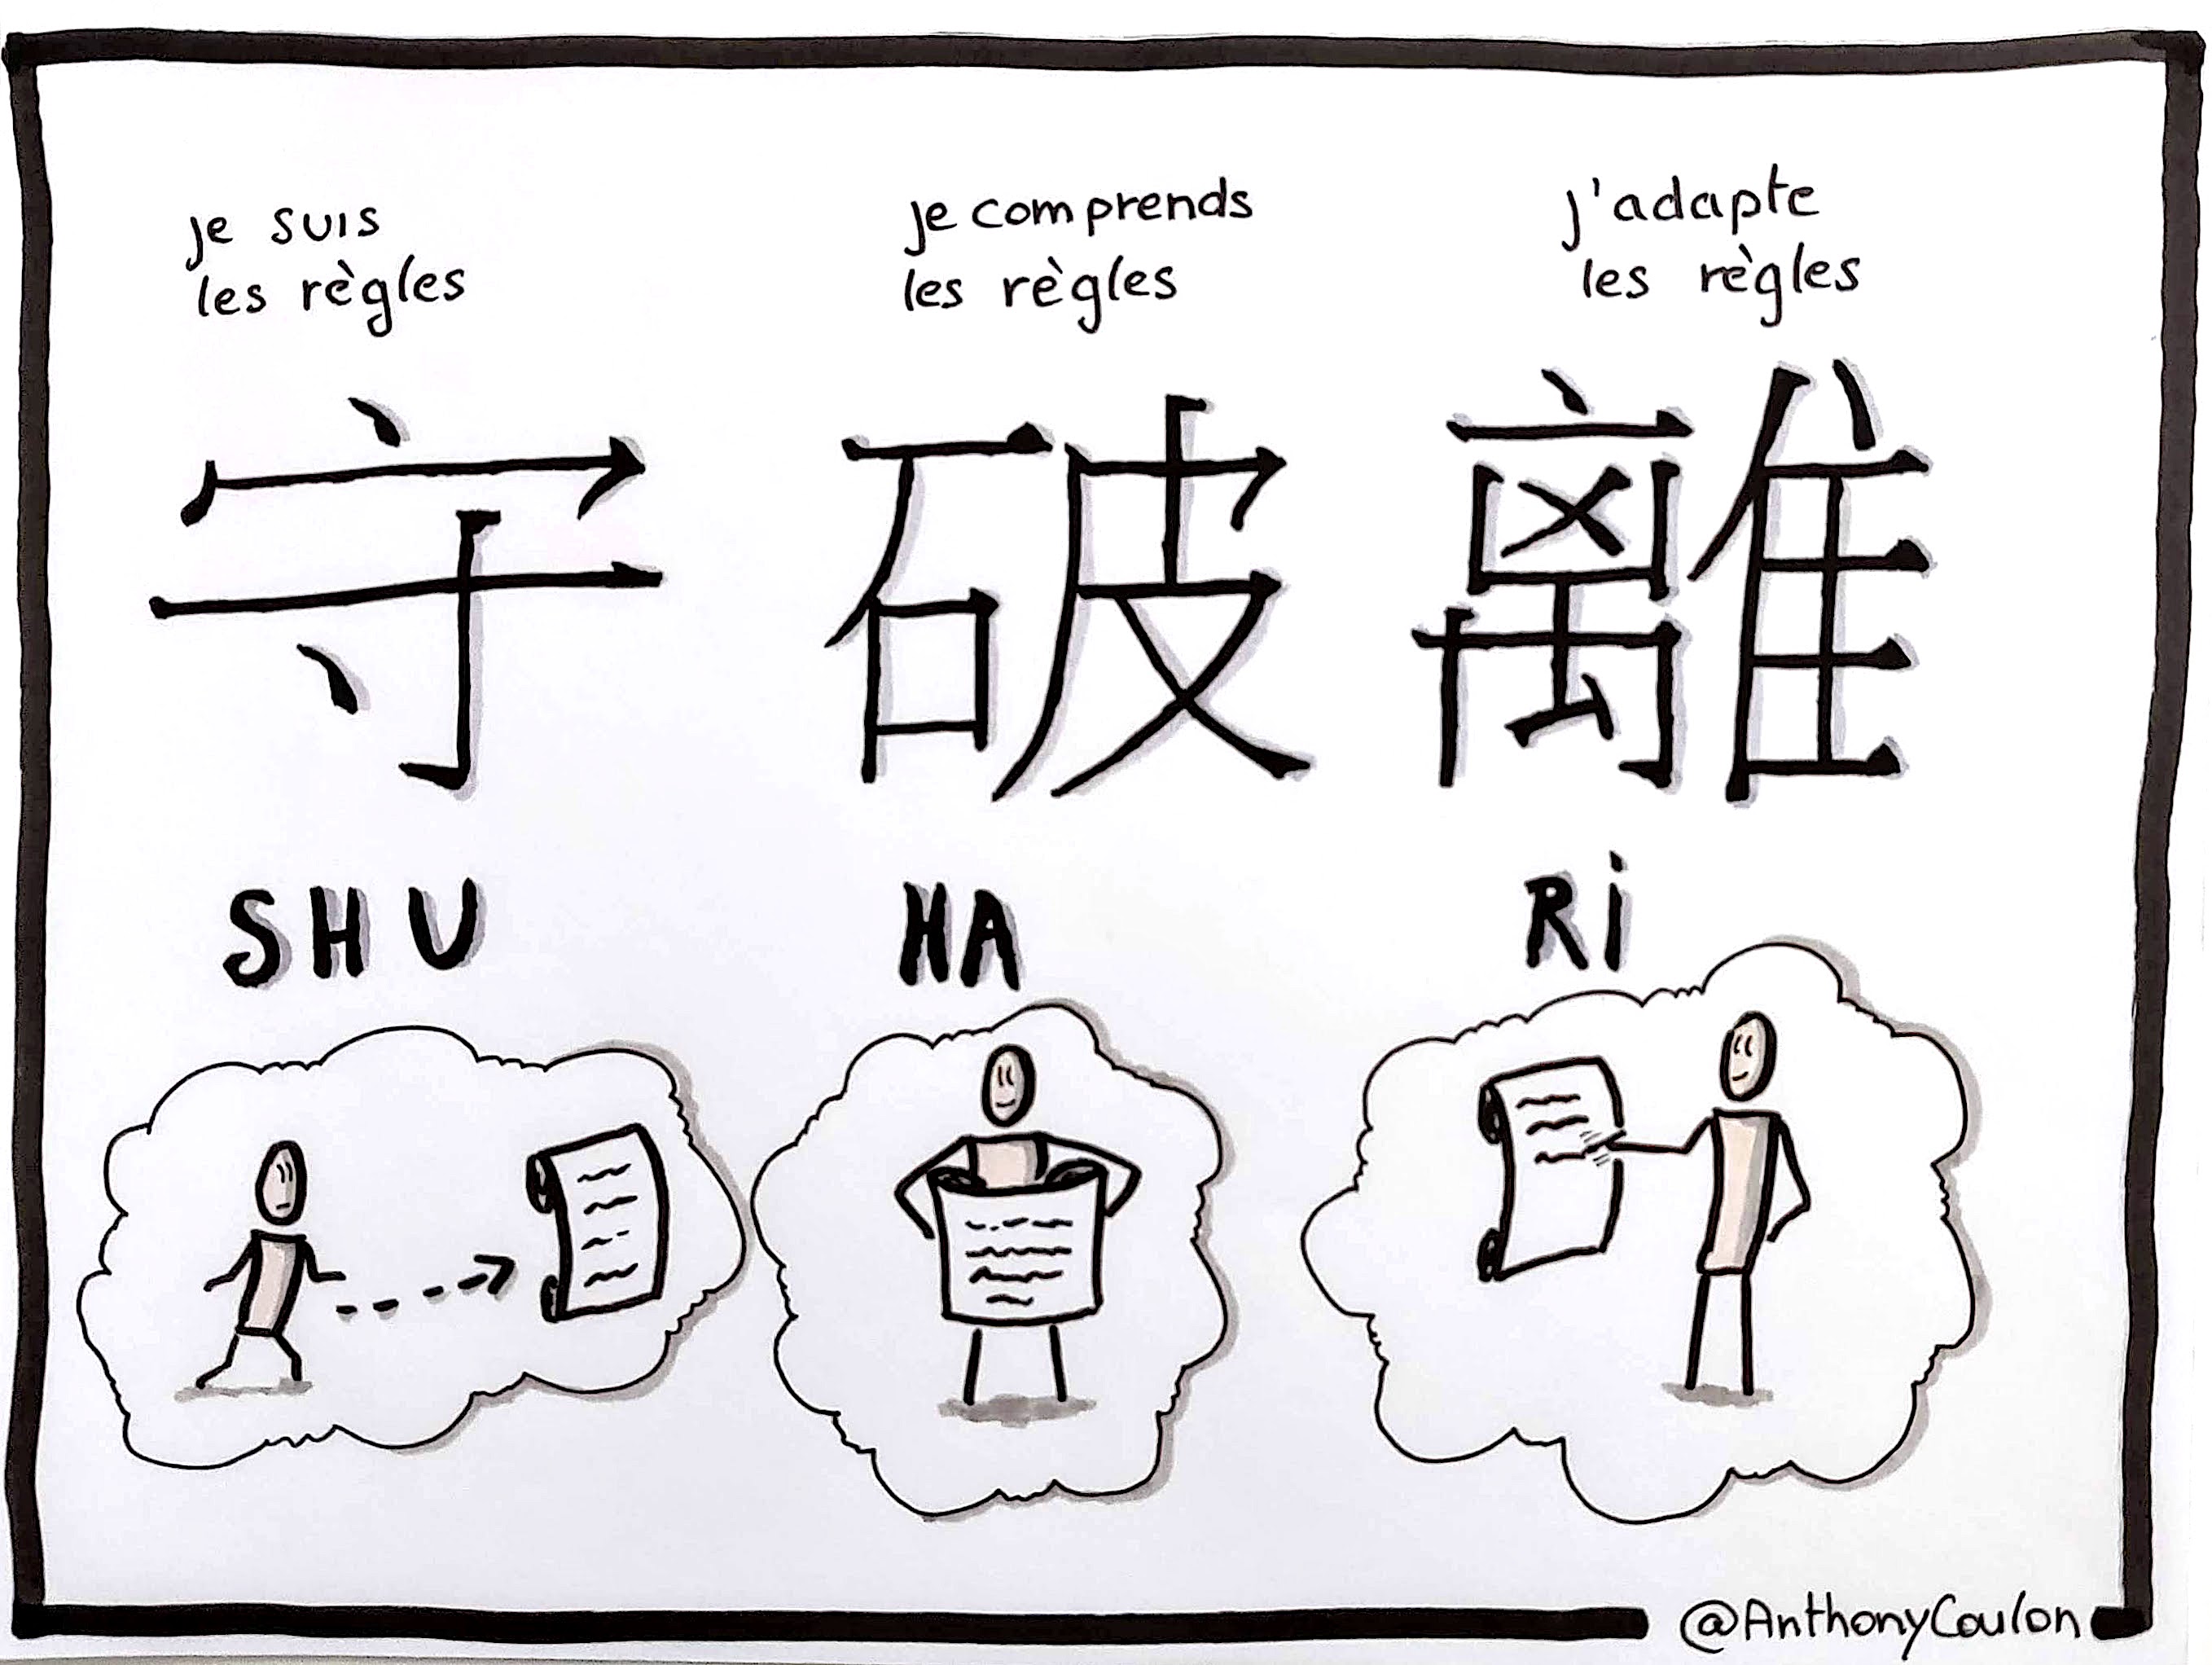 je suis
les règles
je comprends
les règles
j'adapte
les règles
守 破 離
SHU HA Ri
@AnthonyCoulon